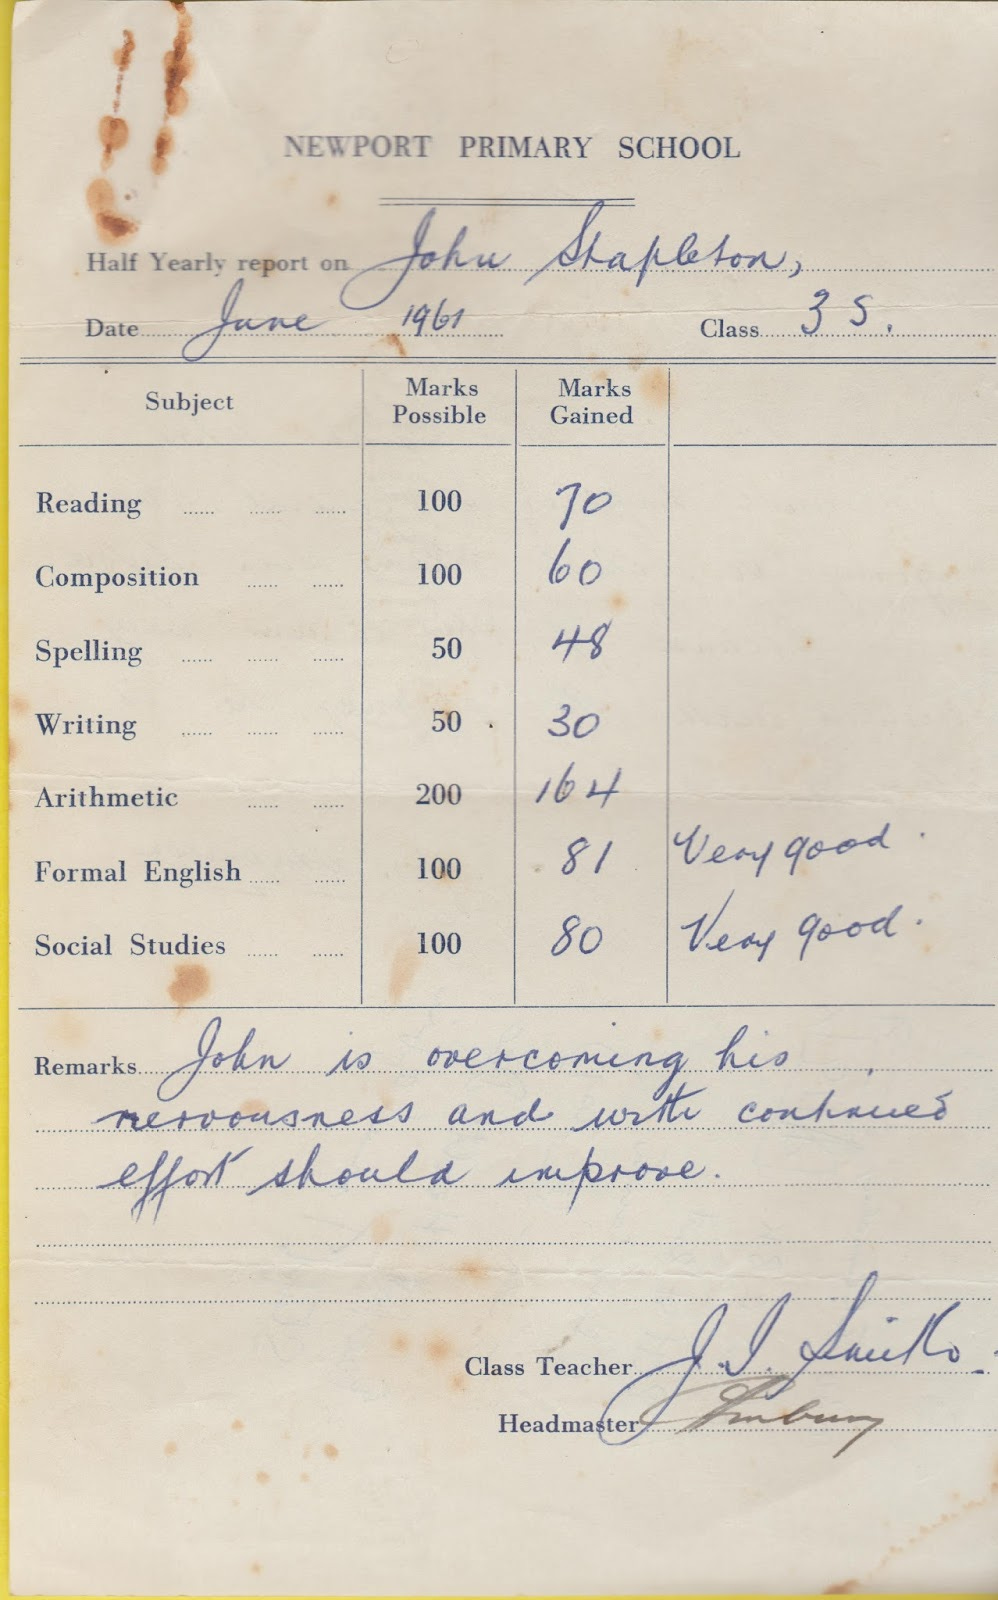 NEWPORT PRIMARY SCHOOL
Half Yearly report on John Stapleton,
Date June 1961 Class 3 S.
Subject Marks Possible Marks Gained
Reading 100 70
Composition 100 60
Spelling 50 48
Writing 50 30
Arithmetic 200 164
Formal English 100 81 Very good.
Social Studies 100 80 Very good.
Remarks John is overcoming his
nervousness and with continued
effort should improve.
Class Teacher J. I. Smith
Headmaster